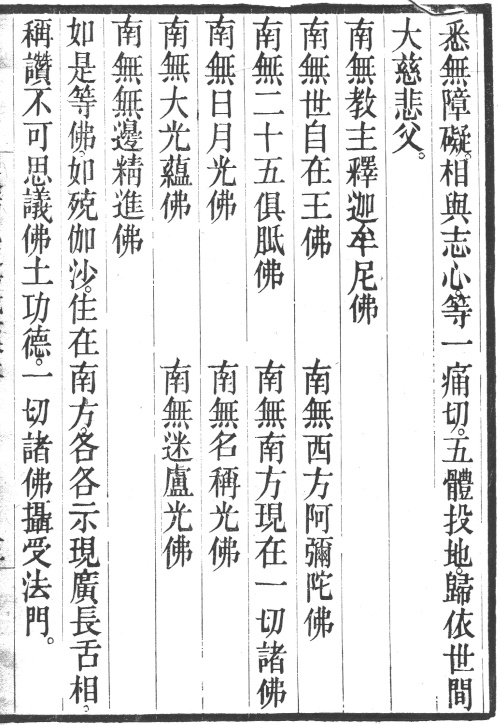 悉無障礙。相與志心。等一痛切。五體投地。歸依世間
大慈悲父。
南無教主釋迦牟尼佛
南無世自在王佛　南無西方阿彌陀佛
南無二十五俱胝佛　南無南方現在一切諸佛
南無日月光佛　南無名稱光佛
南無大光蘊佛　南無迷盧光佛
南無無邊精進佛
如是等佛。如殑伽沙。住在南方。各各示現廣長舌相。
稱讚不可思議佛土功德。一切諸佛攝受法門。